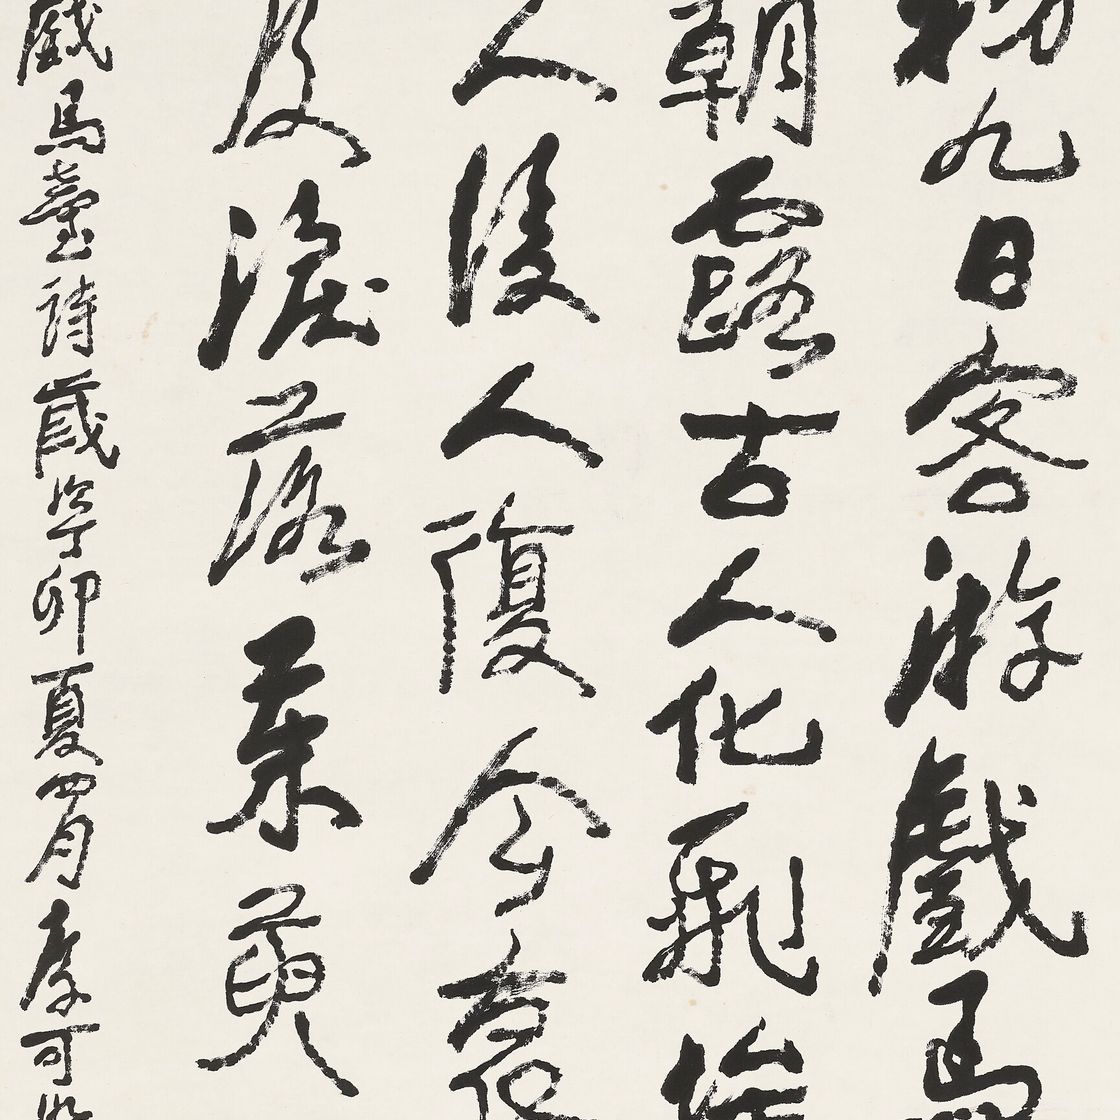 九日客游戲馬
朝露古人化飛埃
人後人復今
及淚落茱萸
戲馬臺詩歲次丁卯夏四月李可